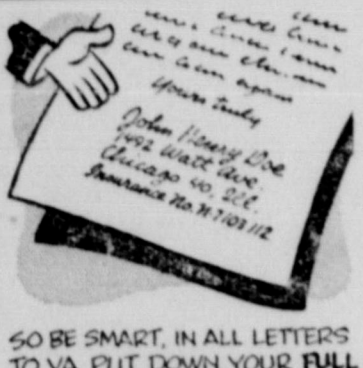 Yours truly
John Henry Doe
1492 Watt Ave.
Chicago 40, Ill.
Insurance No. N 7103 112
SO BE SMART, IN ALL LETTERS
TO VA, PUT DOWN YOUR FULL